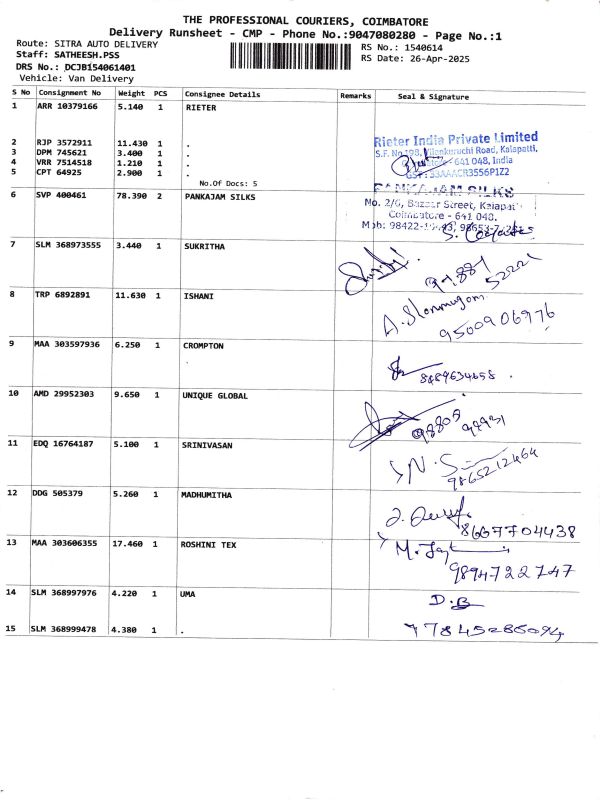 THE PROFESSIONAL COURIERS, COIMBATORE
Delivery Runsheet - CMP - Phone No.:9047080280 - Page No.:1
Route: SITRA AUTO DELIVERY
Staff: SATHEESH.PSS
DRS No.: DCJB154061401
Vehicle: Van Delivery
RS No.: 1540614
RS Date: 26-Apr-2025
S No Consignment No Weight PCS Consignee Details Remarks Seal & Signature
1 ARR 10379166 5.140 1 RIETER
2 RJP 3572911 11.430 1 .
3 DPM 745621 3.400 1 .
4 VRR 7514518 1.210 1 .
5 CPT 64925 2.900 1 .
No.Of Docs: 5
Rieter India Private Limited
S.F. No.198, Vilankuruchi Road, Kalapatti,
641 048, India
33AAACR3556P1Z2
6 SVP 400461 78.390 2 PANKAJAM SILKS
PANKAJAM SILKS
No. 2/6, Bazaar Street, Kalapatti
Coimbatore - 641 048.
7 SLM 368973555 3.440 1 SUKRITHA
99887 52221
8 TRP 6892891 11.630 1 ISHANI
A. Shanmugam
9500906976
9 MAA 303597936 6.250 1 CROMPTON
8489634658
10 AMD 29952303 9.650 1 UNIQUE GLOBAL
98805
11 EDQ 16764187 5.100 1 SRINIVASAN
9865212464
12 DDG 505379 5.260 1 MADHUMITHA
8667704438
13 MAA 303606355 17.460 1 ROSHINI TEX
9894722747
14 SLM 368997976 4.220 1 UMA
D.B
15 SLM 368999478 4.380 1 .
7845286094